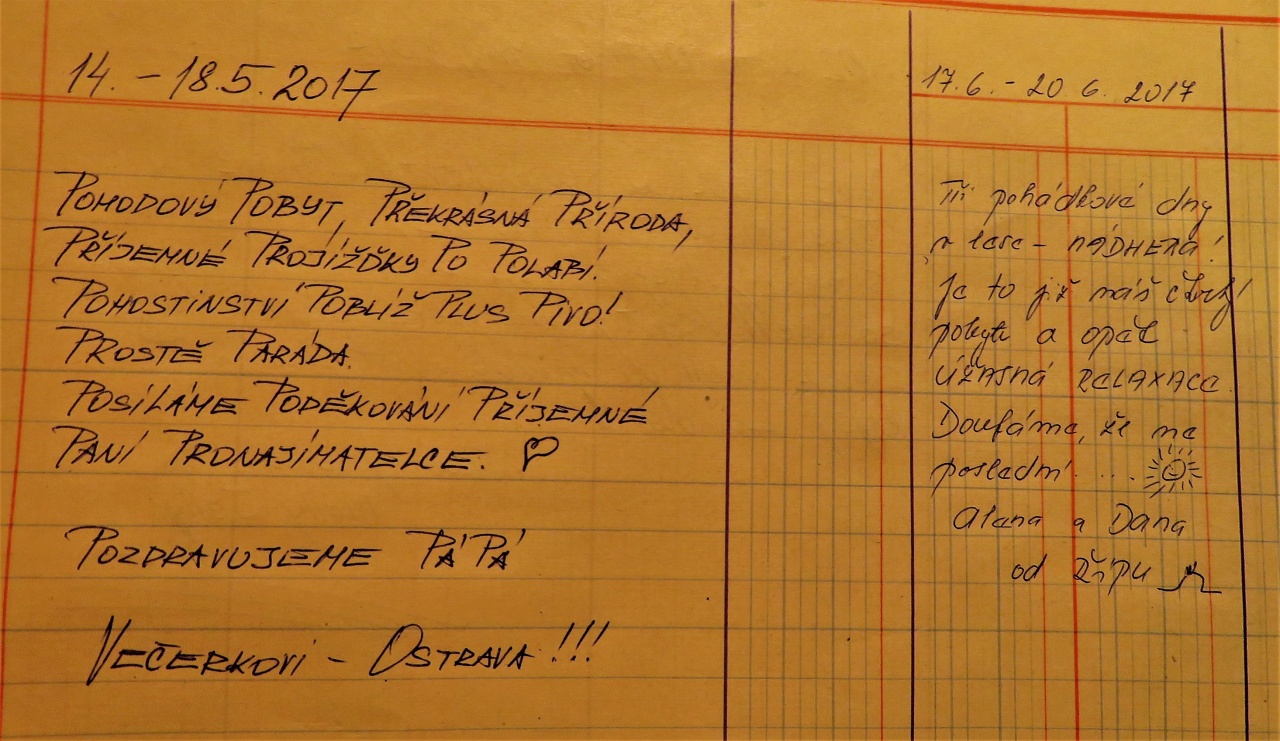 14. – 18.5.2017
POHODOVÝ POBYT, PŘEKRÁSNÁ PŘÍRODA,
PŘÍJEMNÉ PROJÍŽĎKY PO POLABÍ.
POHOSTINSTVÍ POBLÍŽ PLUS PIVO!
PROSTĚ PARÁDA.
POSÍLÁME PODĚKOVÁNÍ PŘÍJEMNÉ
PANÍ PRONAJÍMATELCE.
POZDRAVUJEME PÁ PÁ
VEČERKOVI – OSTRAVA!!!
17.6. – 20.6.2017
Tři pohádkové dny
v lese – NÁDHERA!
Je to již náš čtvrtý
pobyt a opět
ÚŽASNÁ RELAXACE.
Doufáme, že ne
poslední ....
Alena a Dana
od ŘÍPU